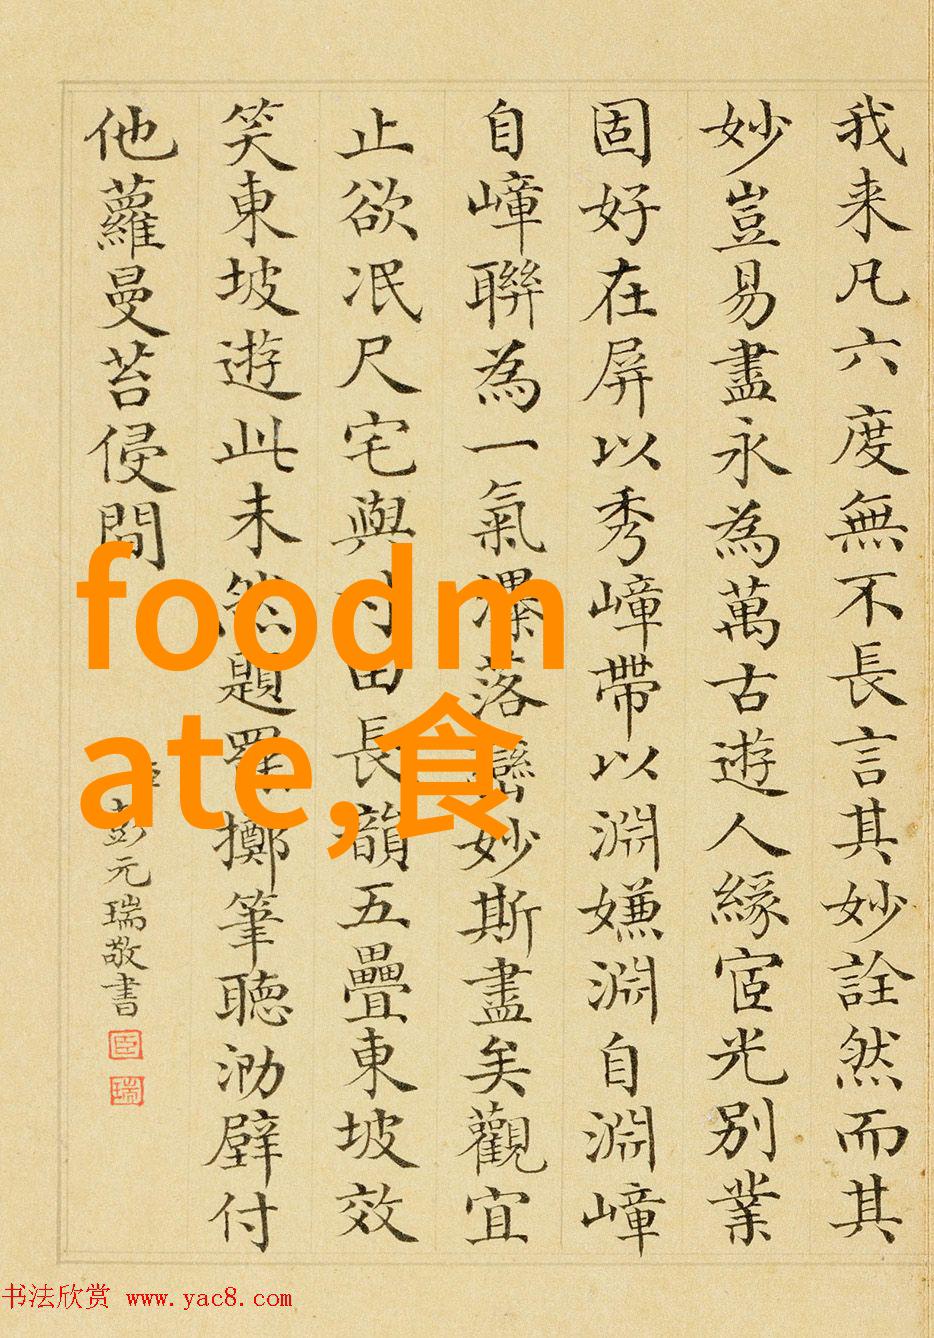 我来凡六度無不長言其妙詮然而其
妙豈易盡永為萬古遊人緣宧光別業
固好在屏以秀嶂帶以淵嫌淵自淵嶂
自嶂聯為一氣瀑落巒妙斯盡矣觀宜
止欲泯尺宅與寸田長韻五疊東坡效
笑東坡遊此未然題羅擲筆聽泐壁付
他蘿蔓苔侵間
臣彭元瑞敬書
臣
瑞
foodm
ate,食
书法欣赏 www.yac8.com